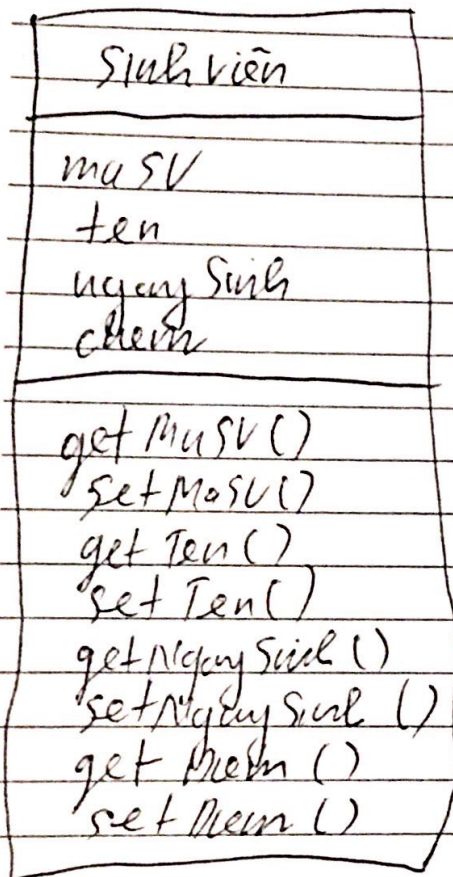 Sinh viên
maSV
ten
ngaySinh
diem
getMaSV()
setMaSV()
getTen()
setTen()
getNgaySinh()
setNgaySinh()
getDiem()
setDiem()